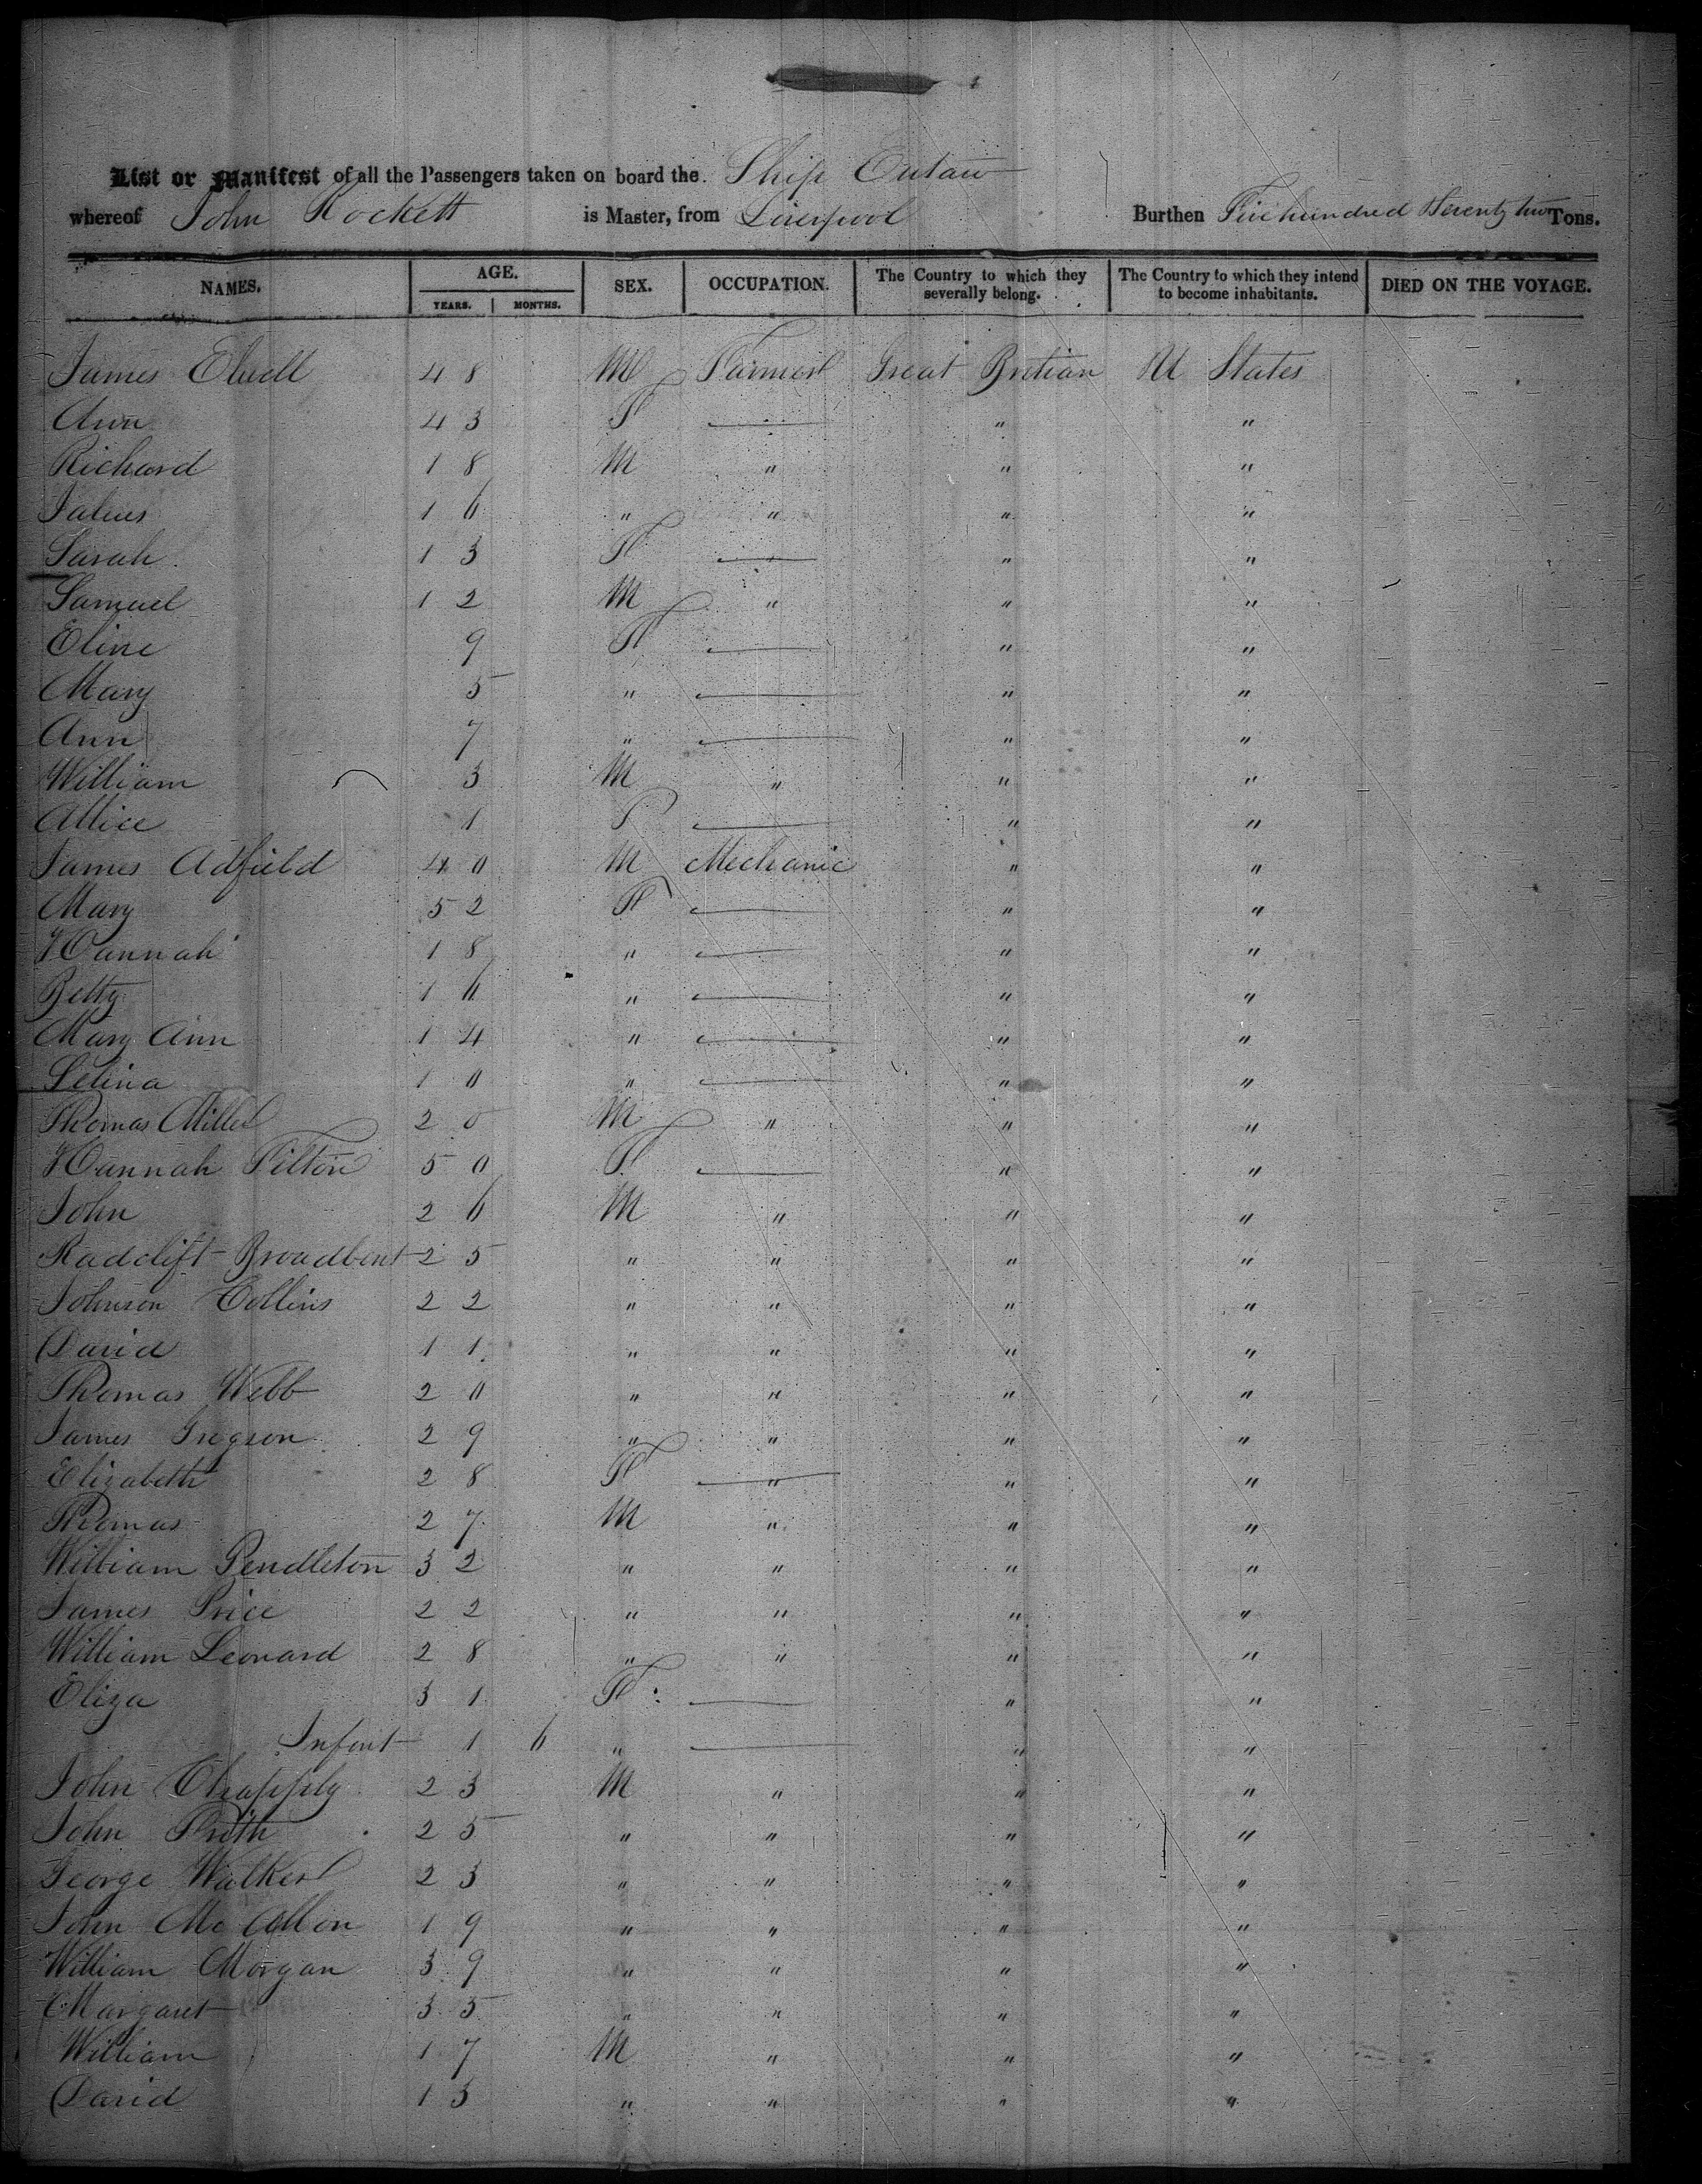 List or Manifest of all the Passengers taken on board the Ship Eutaw
whereof John Rockett is Master, from Liverpool Burthen Five hundred Seventy two Tons.
NAMES. AGE. SEX. OCCUPATION. The Country to which they severally belong. The Country to which they intend to become inhabitants. DIED ON THE VOYAGE.
YEARS. MONTHS.
James Elwell 48 M Farmer Great Britian U States
Ann 43 F — " "
Richard 18 M " " "
16 " " " "
Sarah 13 F — " "
Samuel 12 M " " "
Eline 9 F — " "
Mary 5 " — " "
Ann 7 " — " "
William 3 M " " "
Allice 1 F — " "
James Adfield 40 M Mechanic " "
Mary 52 F — " "
Hannah 18 " — " "
Betty 16 " — " "
Mary Ann 14 " — " "
Selina 10 " — " "
Thomas Miller 20 M " " "
Hannah Tilton 50 F — " "
John 26 M " " "
Radclift Broadbent 25 " " " "
Johnson Collins 22 " " " "
David 11 " " " "
Thomas Webb 20 " " " "
James Gregson 29 " " " "
Elizabeth 28 F " " "
Thomas 27 M " " "
William Pendleton 32 " " " "
James Price 22 " " " "
William Leonard 28 " " " "
Eliza 31 F — " "
Infant 1 6 " — " "
John Chapply 23 M " " "
John 25 " " " "
George Walker 23 " " " "
John 19 " " " "
William Morgan 39 " " " "
Margaret 35 " " " "
William 17 M " " "
David 13 " " " "